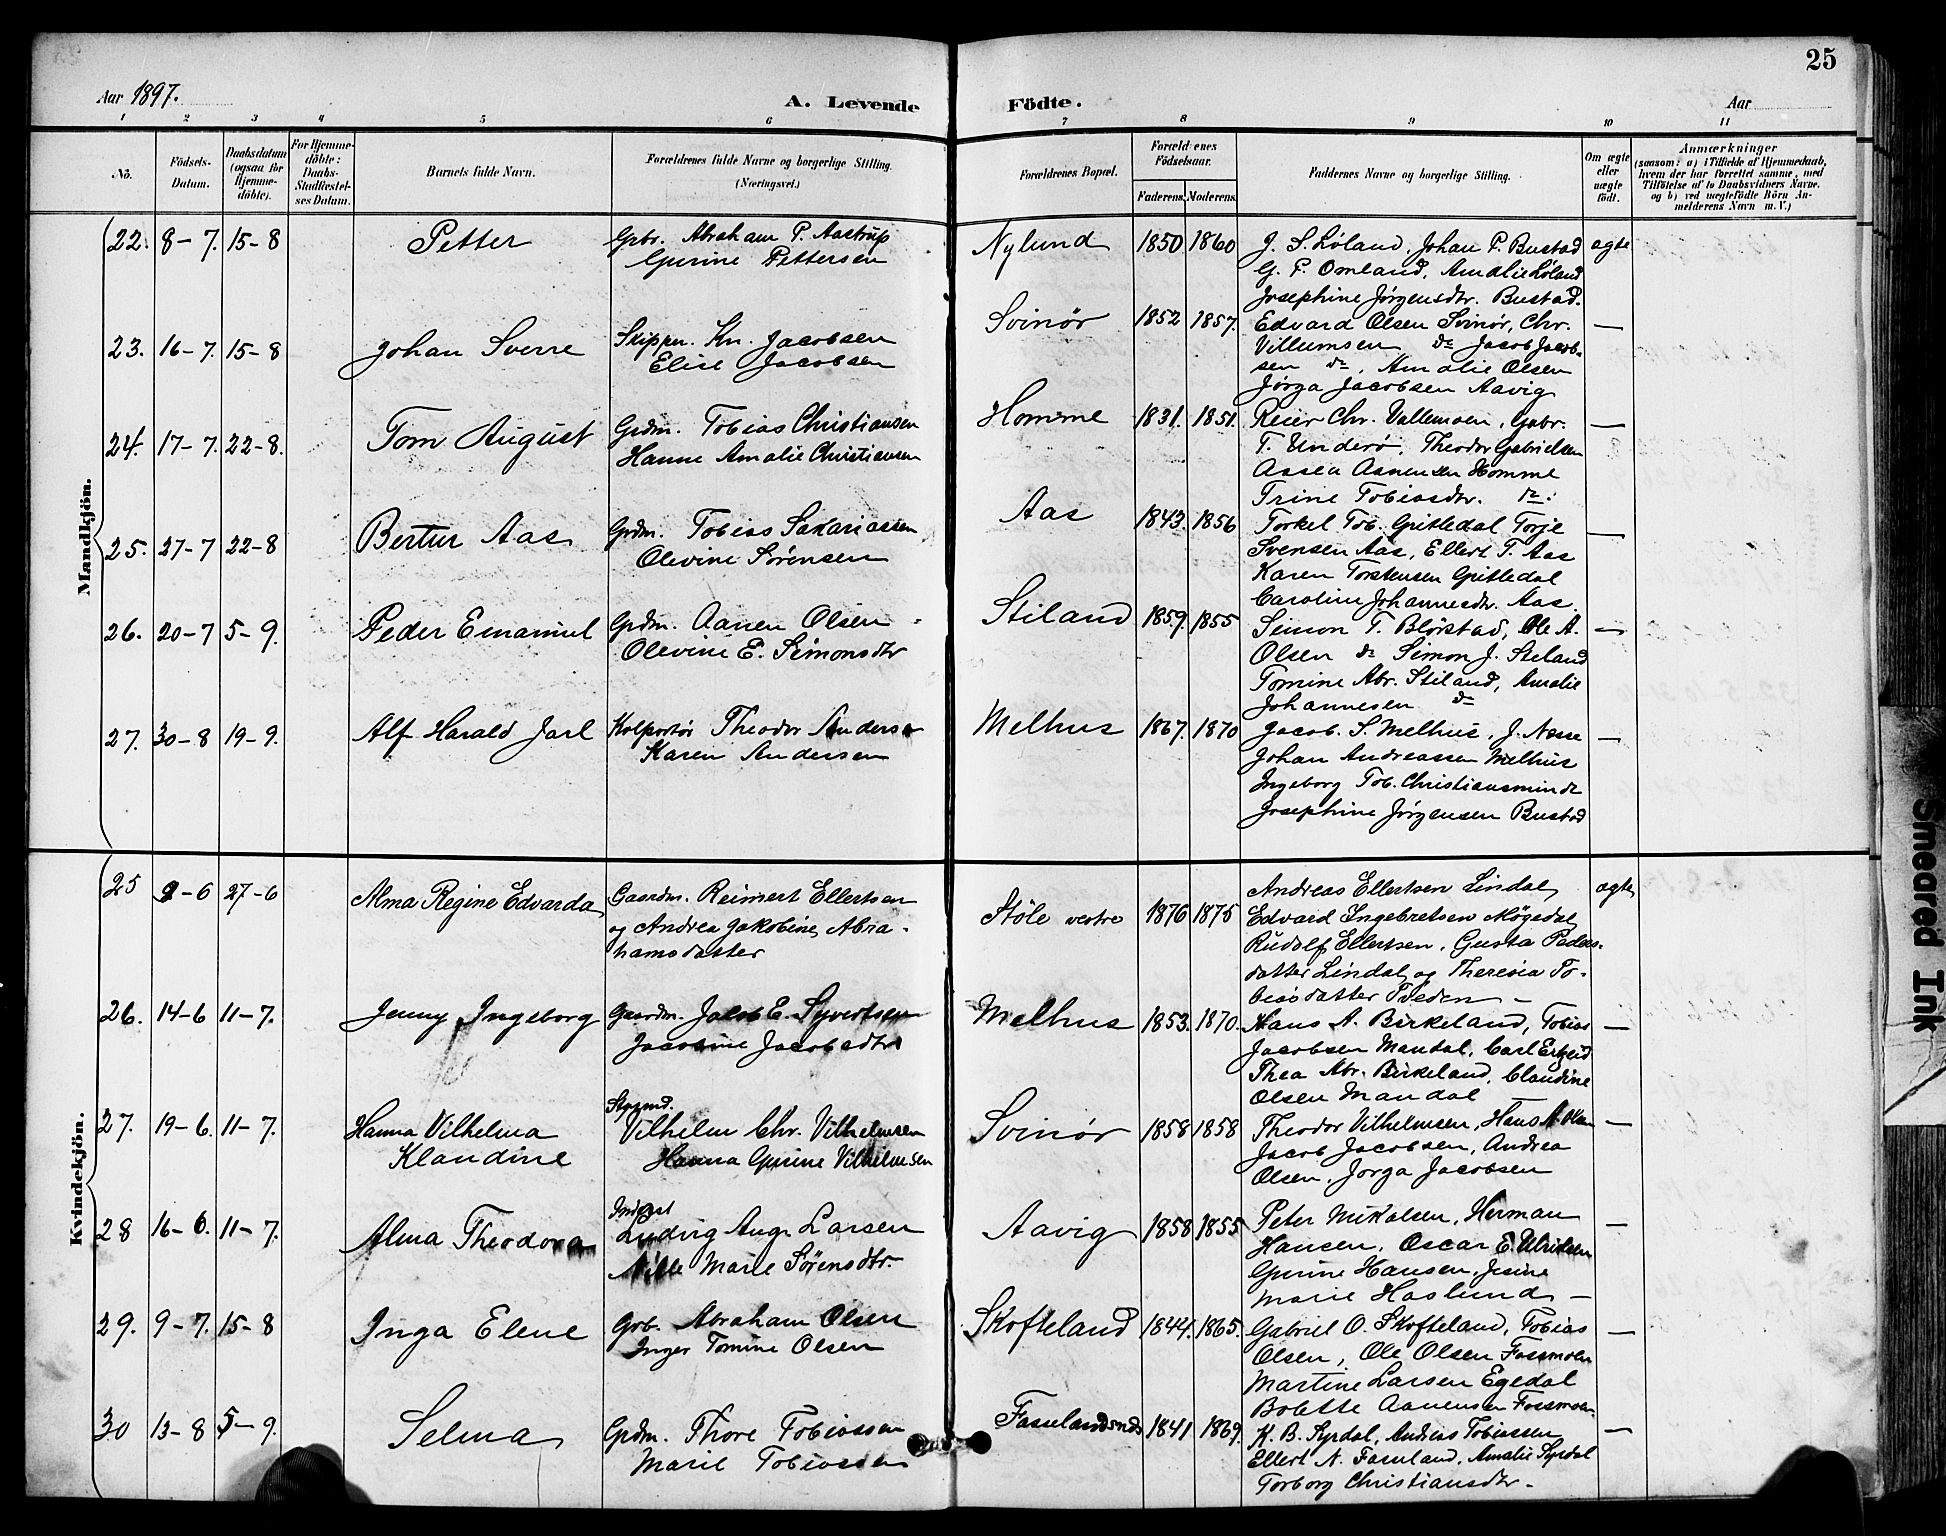 25
Aar 1897.
A. Levende Födte.
Aar
1 2 3 4 5 6 7 8 9 10 11
No.
Födsels-Datum.
Daabsdatum (ogsaa for Hjemme-döbte).
For Hjemme-döbte: Daabs-Stadfæstel-ses Datum.
Barnets fulde Navn.
Forældrenes fulde Navne og borgerlige Stilling. (Næringsvei.)
Forældrenes Bopæl.
Forældrenes Födselsaar.
Faderens. Moderens.
Faddernes Navne og borgerlige Stilling.
Om ægte eller uægte födt.
Anmærkninger (saasom: a) i Tilfælde af Hjemmedaab, hvem der har forrettet samme, med Tilföielse af to Daabsvidners Navne, og b) ved uægtefödte Börn An-melderens Navn m. V.)
Mandkjön.
22. 8-7. 15-8 Petter Gbr. Abraham P. Aastrup
Gurine Pettersen
Nylund 1850. 1860 J. S. Løland, Johan P. Bustad ægte
G. P. Omland, Amalie Løland
Josephine Jørgensdtr. Bustad.
23. 16-7. 15-8 Johan Sverre Skipper. Kn. Jacobsen
Elise Jacobsen
Svinør 1852 1857. Edvard Olsen Svinør, Chr. —
Villumsen do Jacob Jacob-
sen do, Amalie Olsen
Jørga Jacobsen Aavig
24. 17-7. 22-8. Tom August Grdm. Tobias Christiansen
Hanne Amalie Christiansen
Homme 1831. 1851. Reier Chr. Vallemoen, Gabr. —
T. Underø, Theodor Gabrielsen
Assea Aanensen Homme
Trine Tobiasdtr. do.
25. 27-7 22-8 Bertur Aas Grdm. Tobias Sakariassen
Olevine Sørensen
Aas 1843. 1856 Torkel Tob. Gitledal Torje —
Svensen Aas, Ellert T. Aas
Karen Torstensen Gitledal
Caroline Johannesdtr. Aas.
26. 20-7 5-9. Peder Emanuel Grdm. Aanen Olsen
Olevine E. Simonsdtr
Stiland 1859. 1855 Simon T. Blørstad, Ole A. —
Olsen do Simon J. Stiland
Tomine Abr. Stiland, Amalie
Johannesen do
27. 30-8 19-9. Alf Harald Jarl Kolportør Theodor Andersen
Karen Andersen
Melhus 1867. 1870 Jacob. S. Melhus, J. Næse —
Johan Andreassen Melhus
Ingeborg Tob. Christiansminde
Josephine Jørgensen Bustad
Kvindekjön.
25 2-6 27-6 Alma Regine Edvarda Gaardm. Reimert Ellertsen
og Andrea Jakobine Abra-
hamsdatter
Støle vestre 1876 1875 Andreas Ellertsen Lindal, ægte
Edvard Ingebretsen Møgedal,
Rudolf Ellertsen, Gusta Peders-
datter Lindal og Theresia To-
biasdatter Tveden —
26. 14-6 11-7. Jenny Ingeborg Gaardm. Jakob E. Syvertsen
Jacobine Jacobsdtr
Melhus 1853. 1870. Hans A. Birkeland, Tobias —
Jacobsen Mandal, Carl Erkeid
Thea Abr. Birkeland, Claudine
Olsen Mandal
27. 19-6. 11-7. Hanna Vilhelma Klaudine Styrmd.
Vilhelm Chr. Vilhelmsen
Hanna Gurine Vilhelmsen
Svinør 1858 1858 Theodor Vilhelmsen, Hans —
Jacob Jacobsen, Andrea
Olsen, Jorga Jacobsen
28 16-6. 11-7. Alma Theodora
Ludvig Aug. Larsen
Marie Sørensdtr.
Aavig 1858 1855 Peter Mikalsen, Herman —
Hansen, Oscar E. Ulriksen
Gurine Hansen, Jesine
Marie Haslund —
29. 9-7. 15-8 Inga Elene Grb. Abraham Olsen
Inger Tomine Olsen
Skofteland 1844. 1865. Gabriel O. Skofteland, Tobias —
Olsen, Ole Olsen Fossmoen
Martine Larsen Egedal
Bolette Aanensen Fossmoen
30 13-8 5-9. Selma Grdm. Thore Tobiassen
Marie Tobiassen
1841 1869. K. B. Syrdal, Andreas Tobiassen —
Ellert N. Fasseland, Amalie Syrdal
Torborg Christiansdtr.
Smeared Ink